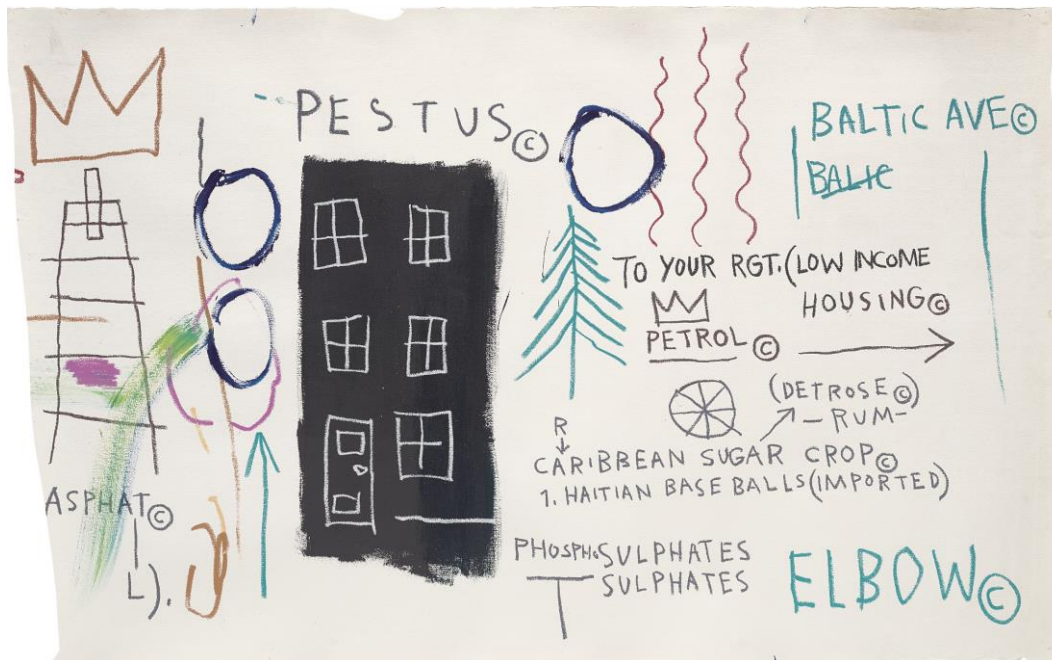 PESTUS©
BALTIC AVE©
BALTC
TO YOUR RGT. (LOW INCOME
HOUSING©
PETROL ©
(DETROSE©)
-RUM-
R
CARIBBEAN SUGAR CROP©
1. HAITIAN BASE BALLS (IMPORTED)
ASPHAT©
L).
PHOSPH. SULPHATES
SULPHATES
ELBOW©